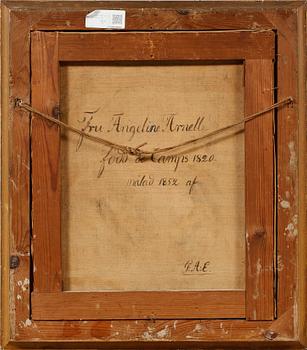 Fru Angeline Arnell
född de Camps 1820.
målad 1852 af
P.A.E.